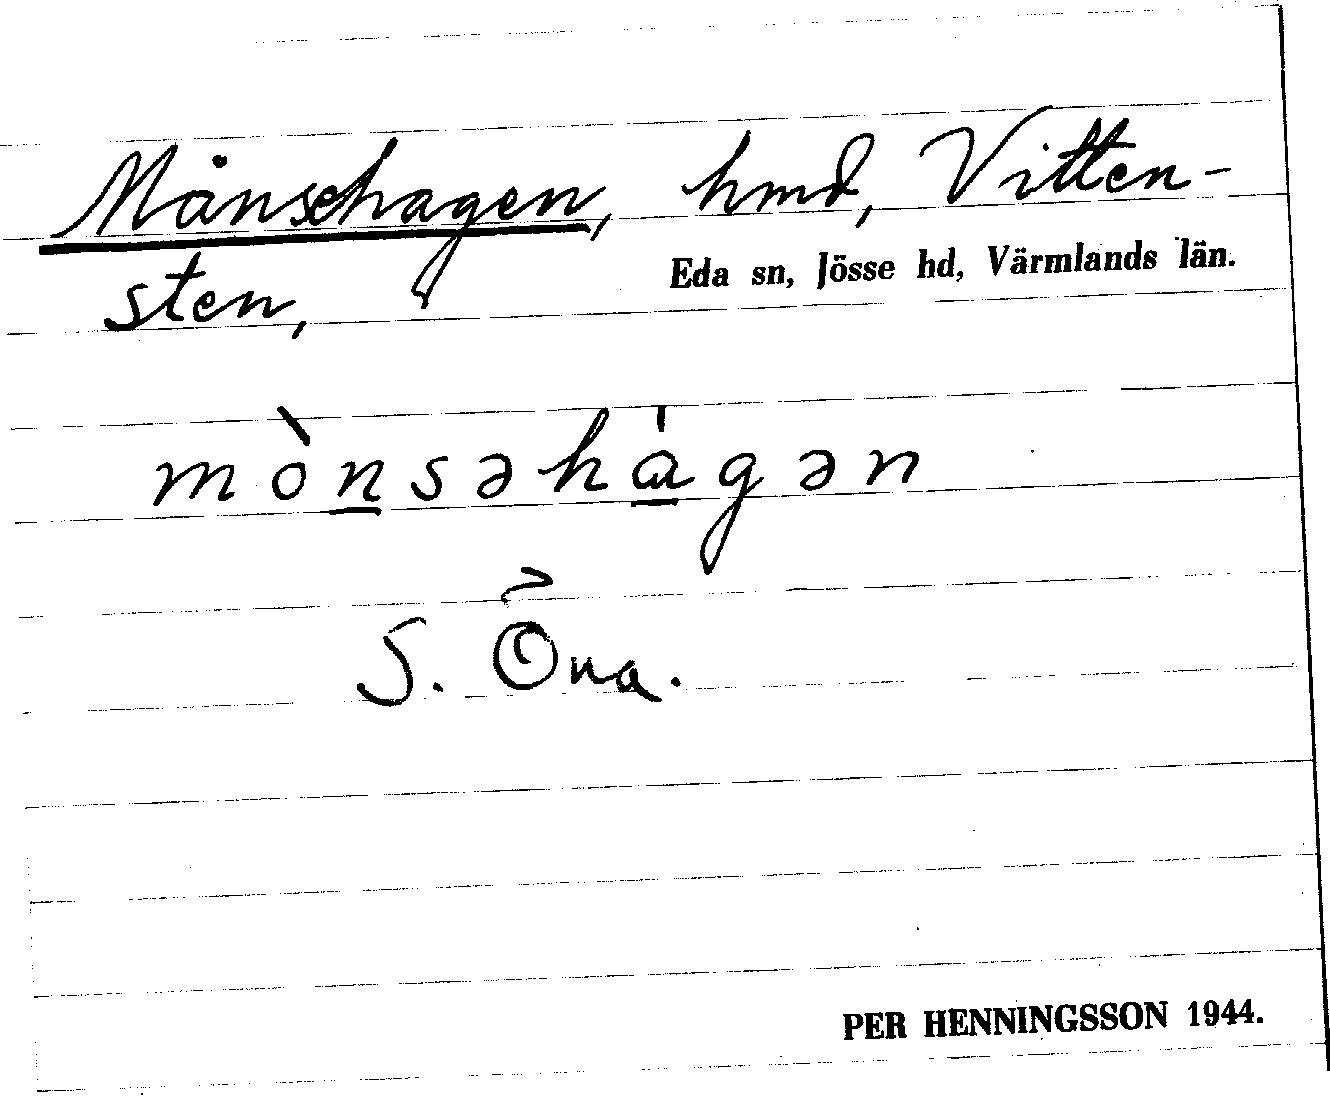 Månsehagen, hmd, Vitten-
sten,
Eda sn, Jösse hd, Värmlands län.
mònsəhágən
S. Öna.
PER HENNINGSSON 1944.